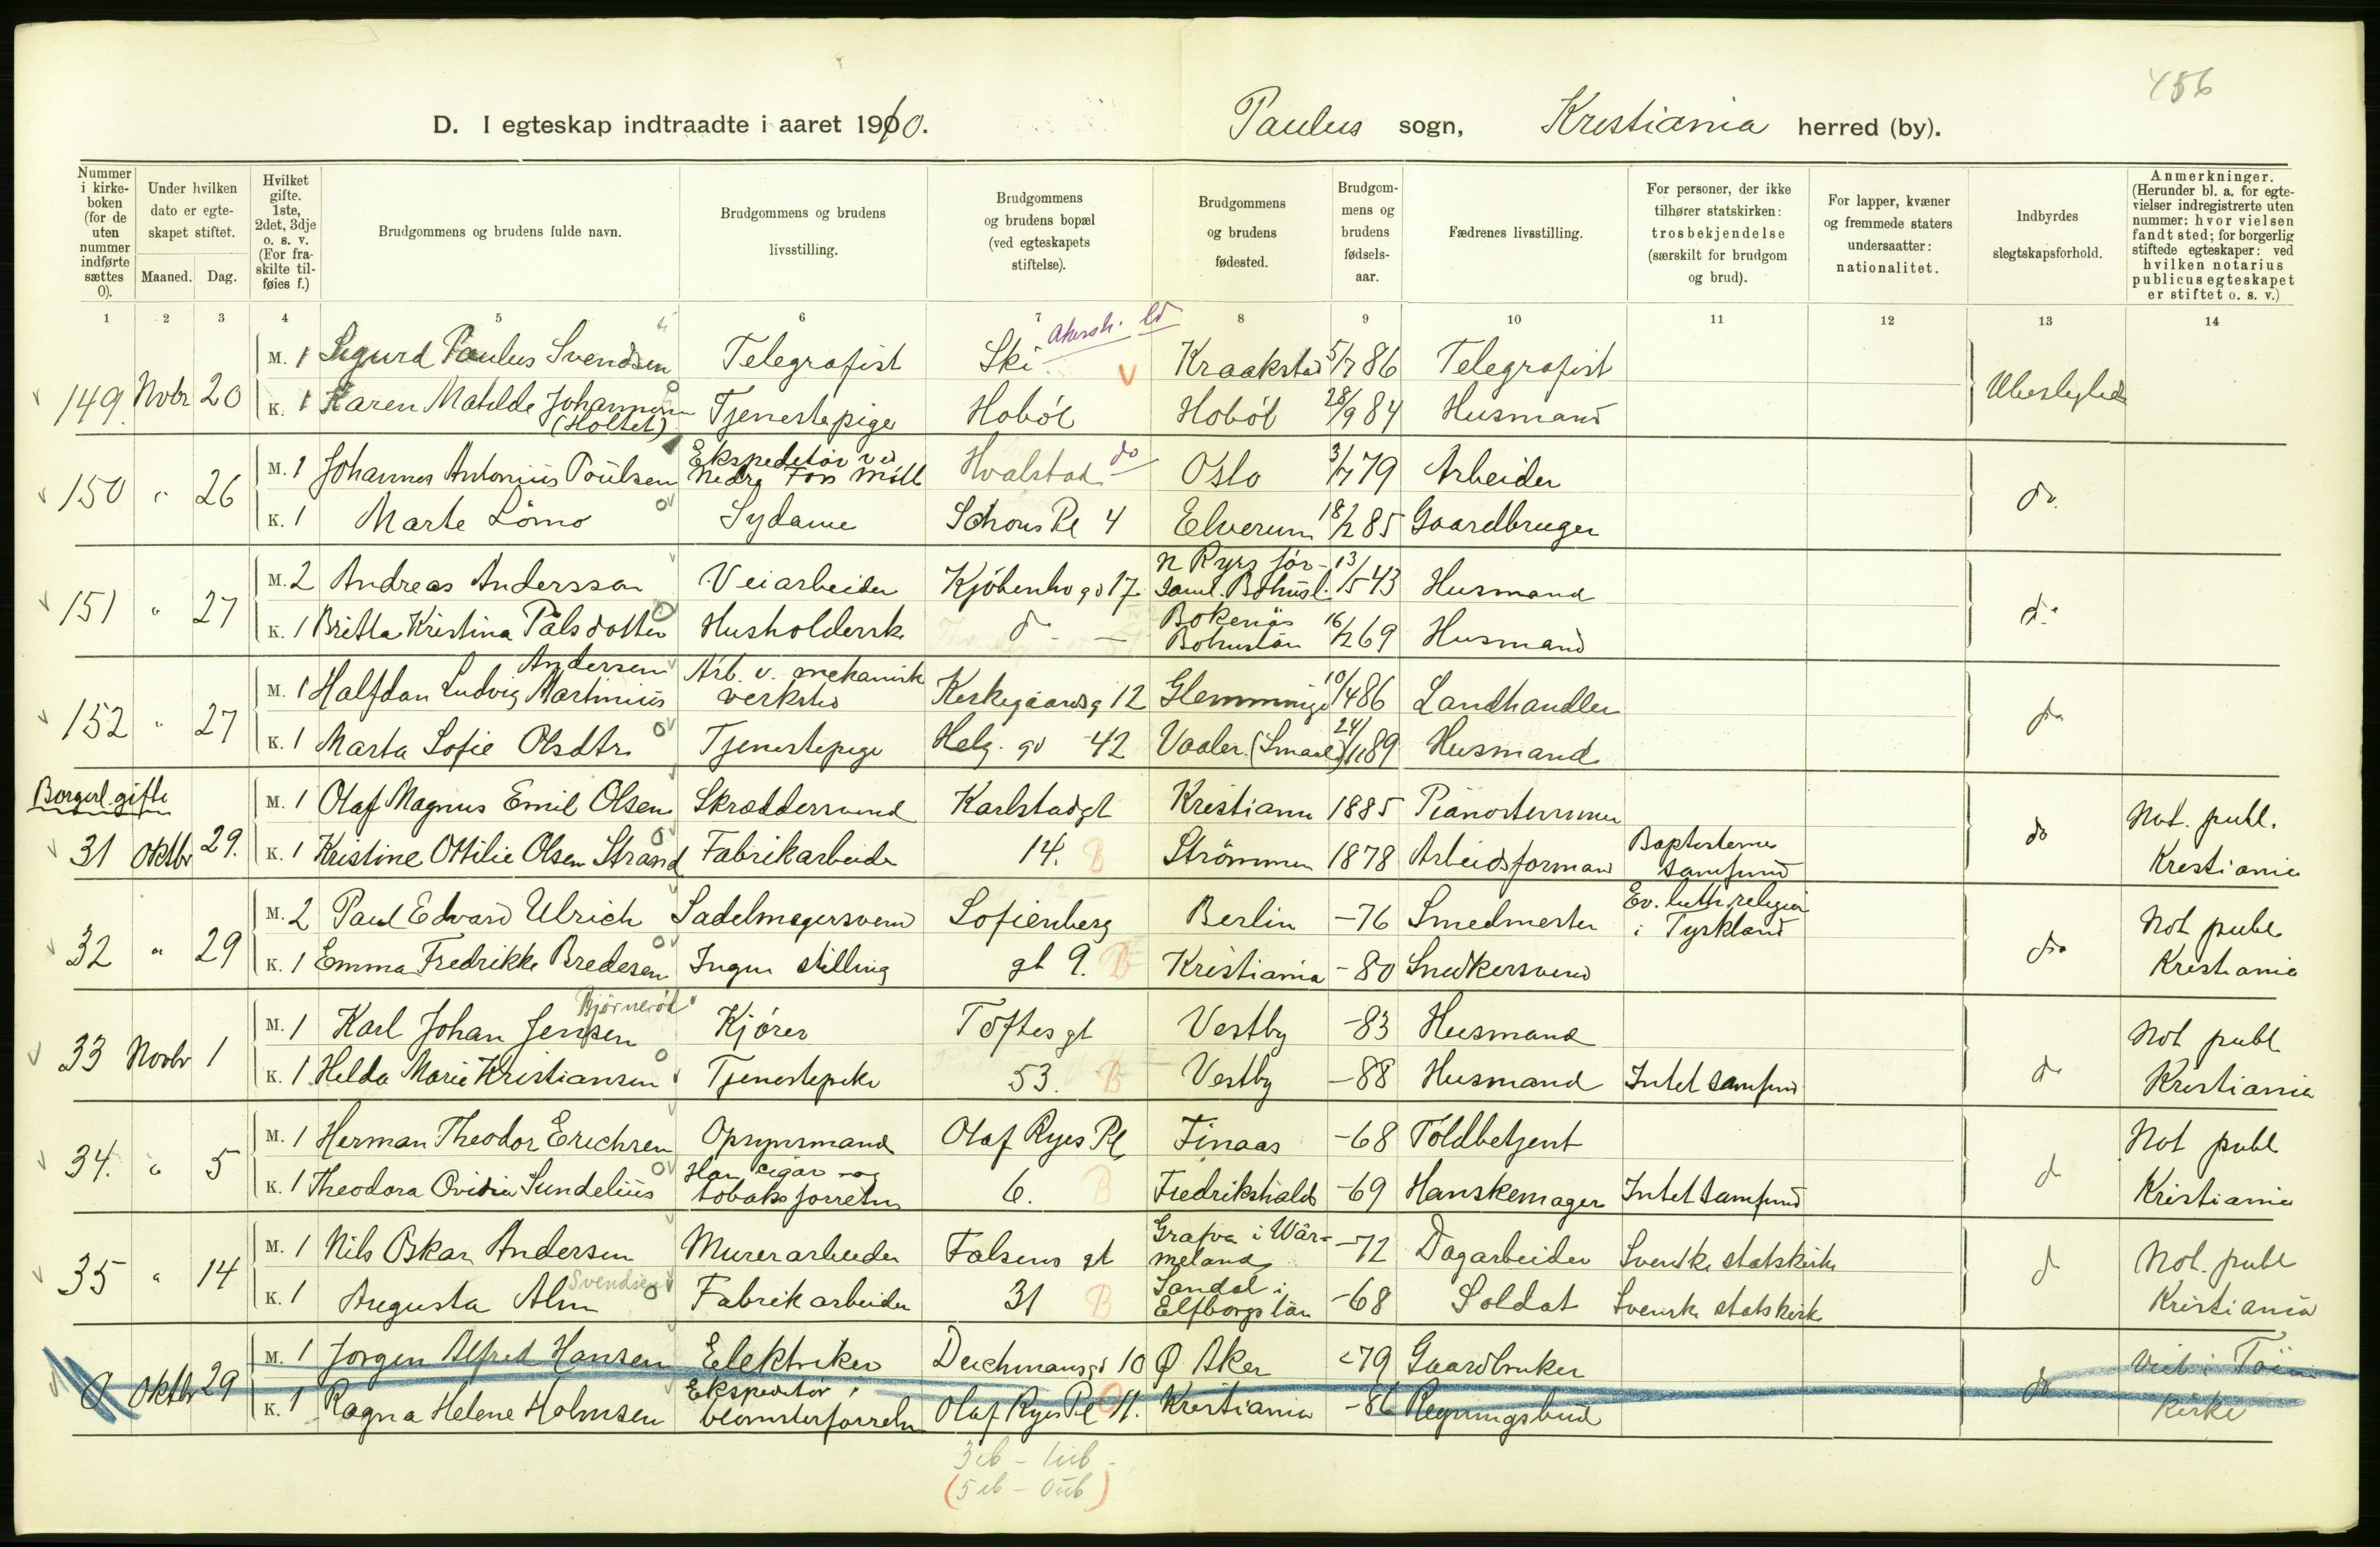 456
D. I egteskap indtraadte i aaret 1910. Paulus sogn, Kristiania herred (by).
Nummer i kirkeboken (for de uten nummer indførte sættes 0).
Under hvilken dato er egteskapet stiftet.
Maaned. Dag.
Hvilket gifte. 1ste, 2det, 3dje o. s. v. (For fraskilte tilføies f.)
Brudgommens og brudens fulde navn.
Brudgommens og brudens livsstilling.
Brudgommens og brudens bopæl (ved egteskapets stiftelse).
Brudgommens og brudens fødested.
Brudgommens og brudens fødselsaar.
Fædrenes livsstilling.
For personer, der ikke tilhører statskirken: trosbekjendelse (særskilt for brudgom og brud).
For lapper, kvæner og fremmede staters undersaatter: nationalitet.
Indbyrdes slegtskapsforhold.
Anmerkninger. (Herunder bl. a. for egtevielser indregistrerte uten nummer: hvor vielsen fandt sted; for borgerlig stiftede egteskaper: ved hvilken notarius publicus egteskapet er stiftet o. s. v.)
1 2 3 4 5 6 7 8 9 10 11 12 13 14
149. Novbr 20 M. 1 Sigurd Paulus Svendsen Telegrafist Ski Akersh. Kraakstad 5/7 86 Telegrafist Ubeslegtede
K. 1 Karen Matilde Johannesen (Holtet) Tjenestepige Hobøl Hobøl 28/9 84 Husmand
150 " 26 M. 1 Johannes Antonius Poulsen Ekspeditør ved Nedre Foss Mölle Hvalstad do Oslo 3/7 79 Arbeider do.
K. 1 Marte Lömo Sydame Schous Pl 4 Elverum 18/2 85 Gaardbruger
151 " 27 M. 2 Andreas Andersson Veiarbeider Kjøbenhvgd 17 N Ryrs för-saml. Bohusl. 13/5 43 Husmand do
K. 1 Britta Kristina Pålsdotter Husholdersk. do — Bokenäs Bohuslän 16/2 69 Husmand
152 " 27 M. 1 Halfdan Ludvig Martinius Andersen Arb. v. mekanisk verksted Kirkegaardsg 12 Glemminge 10/4 86 Landhandler do
K. 1 Marta Sofie Olsdtr. Tjenestepige Helg. gd 42 Vaaler (Smaal) 24/11 89 Husmand
Borgerl. gifte
31 Oktbr 29. M. 1 Olaf Magnus Emil Olsen Skræddersvend Karlstadgt Kristiania 1885 Pianostemmer do Not. publ.
K. 1 Kristine Ottilie Olsen Strand Fabrikarbeide 14. B Strömmen 1878 Arbeidsformand Baptisternes samfund Kristiania
32 " 29 M. 2 Paul Edvard Ulrich Sadelmagersvend Sofienberg Berlin -76 Smedmester Ev. luth. religion i Tyskland do Not publ
K. 1 Emma Fredrikke Bredesen Ingen stilling gt 9. B Kristiania -80 Snedkersvend Kristiania
33 Novbr 1 M. 1 Karl Johan Jensen Bjørnerød Kjører Toftes gt Vestby -83 Husmand do Not publ
K. 1 Helda Marie Kristiansen Tjenestepike 53. B Vestby -88 Husmand Intet samfund Kristiania
34. " 5 M. 1 Herman Theodor Erichsen Opsynsmand Olaf Ryes Pl Finaas -68 Toldbetjent do Not publ
K. 1 Theodora Ovidia Sundelius Har cigar og tobaksforretn 6. B Fredrikshald -69 Hanskemager Intet samfund Kristiania
35 " 14 M. 1 Nils Oskar Andersen Murerarbeider Falsens gt Grafva i Wärmeland -72 Dagarbeider Svenske statskirke do Not. publ
K. 1 Augusta Alm Svendsen Fabrikarbeider 31 B Sandal i Elfborgs län -68 Soldat Svenske statskirke Kristiania
0 Oktbr 29 M. 1 Jørgen Alfred Hansen Elektriker Deichmansgd 10 Ø Aker -79 Gaardbruker do Viet i Tøien
K. 1 Ragna Helene Holmsen Ekspeditør i blomsterforretn Olaf Ryes Pl 11. Kristiania -86 Regningsbud Kirke
3 ib - 1 ub
(5 ib - 0 ub)